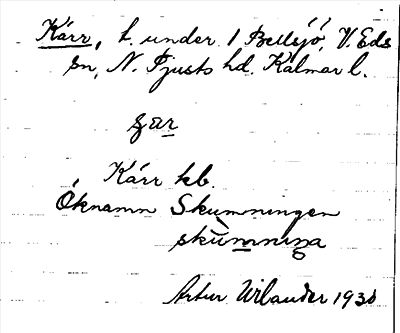 Kärr, t. under 1 Bellsjö, V. Eds
sn, N. Tjusts hd. Kalmar l.
Kärr kb.
Öknamn Skumningen
skùmniṉa
Artur Wilander 193